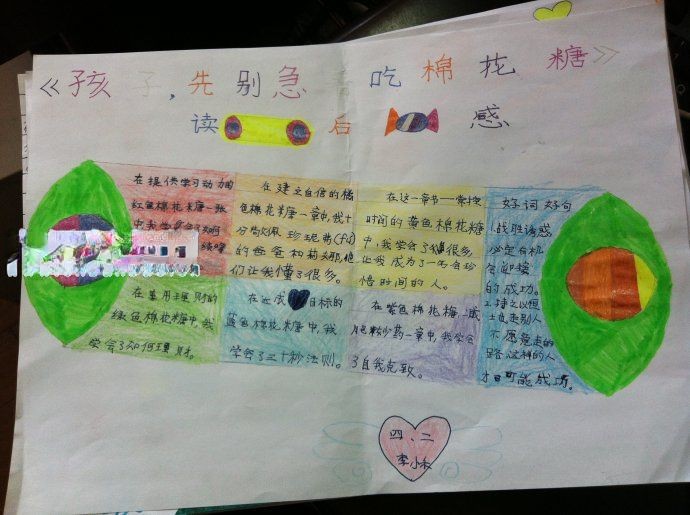 《孩子,先别急着吃棉花糖》
读后感
在提供学习动力的
红色棉花糖一
中我学会了如何
在建立自信的橘
色棉花糖一章中,我十
分
的爸爸和
们让我懂了很多。
在这一章节——掌控
时间的黄色棉花糖
中,我学会了很多
让我成为了一名会珍
惜时间的人。
好词好句
1.战胜诱惑
必定有机
会迎接
的成功。
2.持之以恒
走别人
不愿意走的
路,这样的人
才有可能成功。
在善用理财的
绿色棉花糖中,我
学会了如何理财。
在达成目标的
蓝色棉花糖中,我
学会了三十秒法则。
在紫色棉花糖,
一章中,我学会
了自我克
四、二
李小